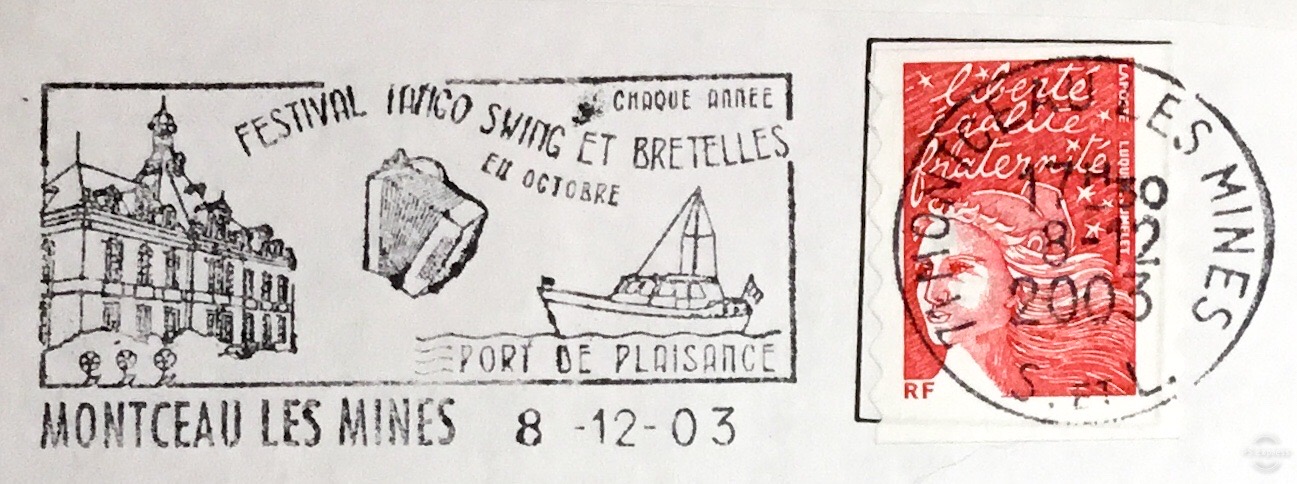 CHAQUE ANNEE
FESTIVAL TANGO SWING ET BRETELLES
EN OCTOBRE
PORT DE PLAISANCE
MONTCEAU LES MINES 8 -12-03
liberté
égalité
fraternité
LA POSTE
LUQUET
RF
MONTCEAU LES MINES
17H
8-12
2003
S. ET L.